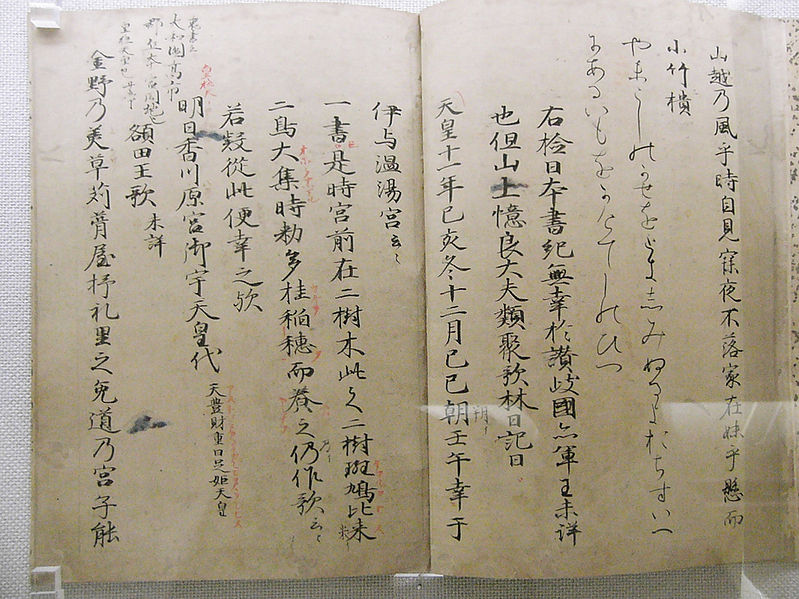 山越乃風乎時自見寐夜不落家在妹乎懸而
小竹樻
やまこしのかせをときしみぬるよおちすいへ
にあるいもをかけてしのひつ
右检日本書紀無幸於讃岐國亦軍王未詳
也但山上憶良大夫類聚歌林曰記曰
天皇十一年己亥冬十二月己巳朔壬午幸于
伊与温湯宮云〻
一書是時宮前在二樹木此之二樹斑鳩比米
二鳥大集時勅多桂稲穂而養之仍作歌云〻
若疑從此便幸之歟
明日香川原宮御宇天皇代
天豊財重日足姫天皇
額田王歌
未詳
金野乃美草苅葺屋杼礼里之兎道乃宮子能